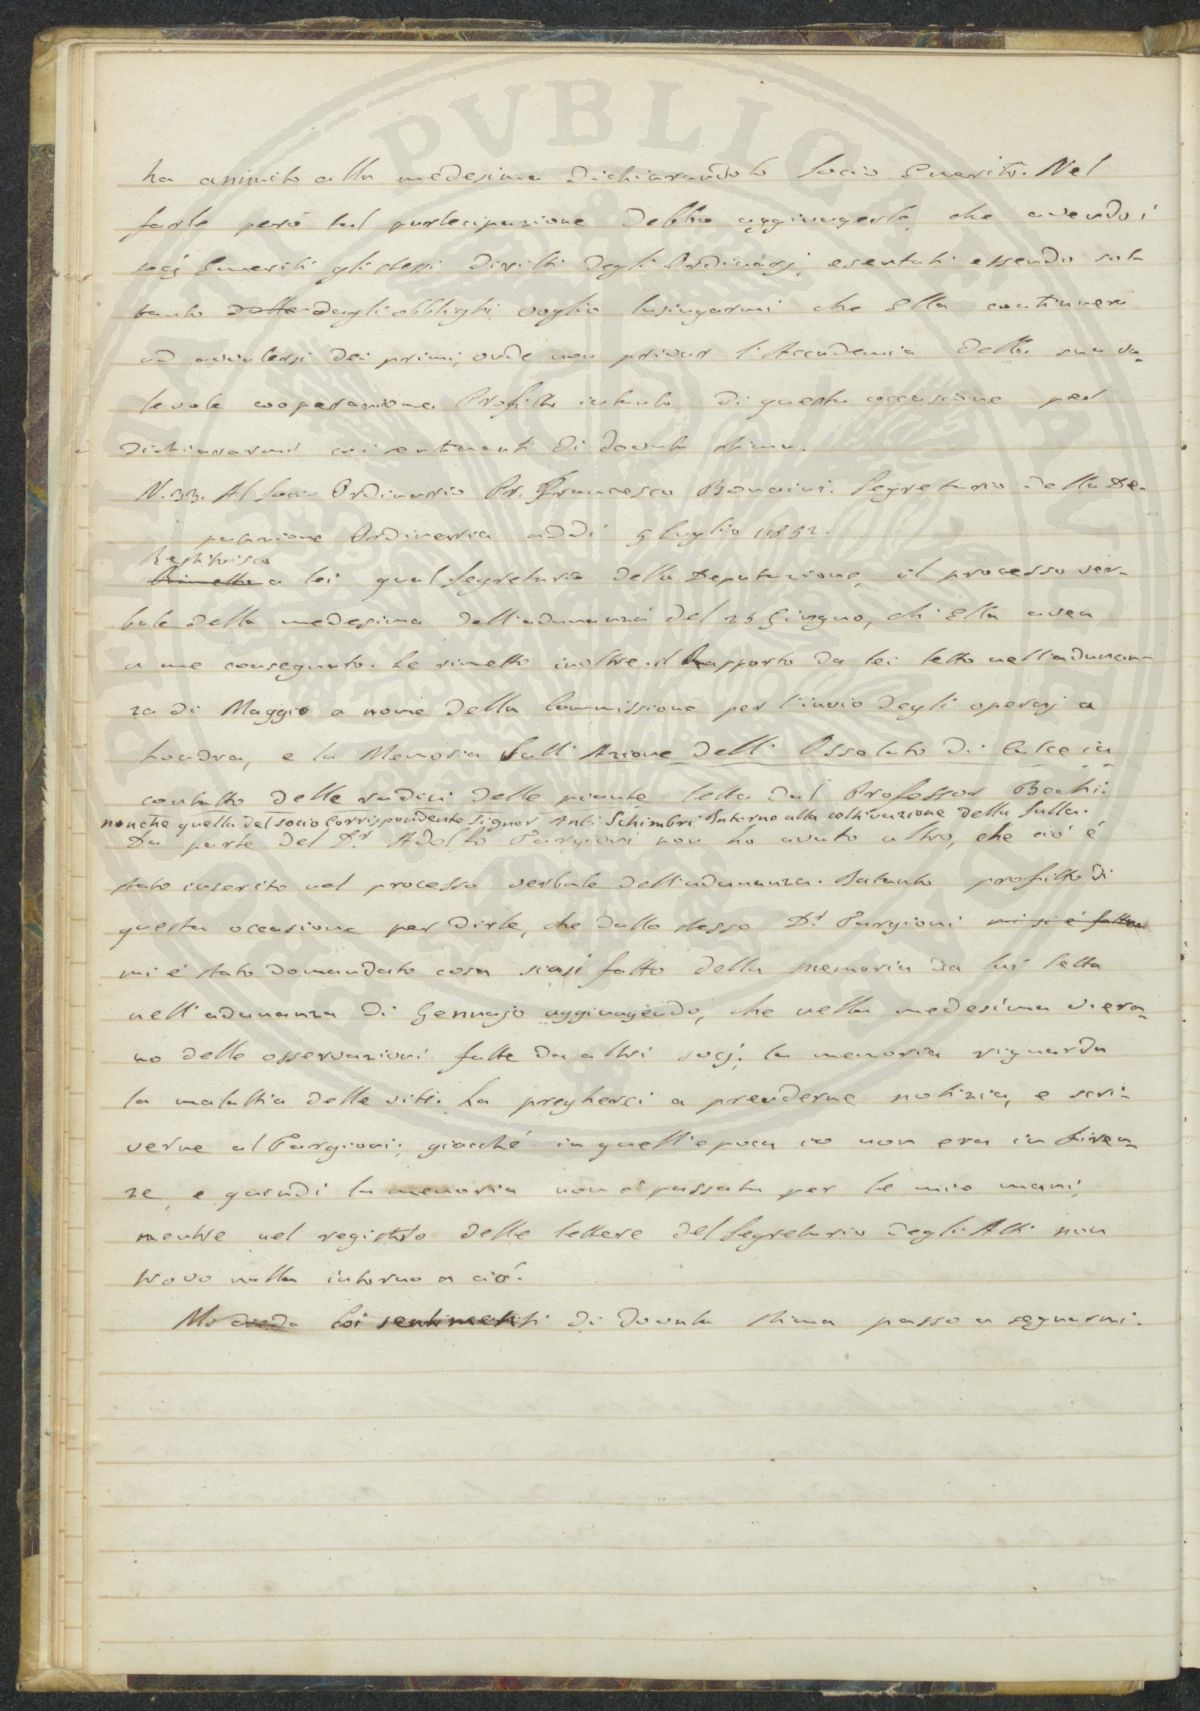 ha annuito alla medesima dichiarandolo Socio Emerito. Nel
farle però tal partecipazione debbo aggiungerle, che avendo i
socj Emeriti gli stessi diritti degli Ordinarj, esentati essendo sol
tanto dagli obblighi voglio lusingarmi che Ella continuerà
ad avvalersi dei primi, onde non privar l'Accademia della sua va-
levole cooperazione. Profitto intanto di questa occasione per
dichiararmi coi sentimenti di dovuta stima.
N. 33. Al Socio Ordinario Pr. Francesco Bonaini. Segretario della De-
putazione Ordinaria addì 5 Luglio 1852.
Restituisco
Rimetto a lei qual Segretario della Deputazione, il processo ver-
bale della medesima dell'adunanza del 25 Giugno, ch'Ella avea
a me consegnato. Le rimetto inoltre il Rapporto da lei letto nell'adunan-
za di Maggio a nome della Commissione per l'invio degli operaj a
Londra, e la Memoria Sull'Azione dell'Ossalato di Calce in
contatto delle radici delle piante letta dal Professor Bechi.
nonché quella del socio Corrispondente Signor Ant: Schimbri Intorno alla coltivazione della Sulla.
Da parte del Dr. Adolfo Targioni non ho avuto altro, che ciò è
stato inserito nel processo verbale dell'adunanza. Intanto profitto di
questa occasione per dirle, che dallo stesso Dr. Targioni mi si è fatta
mi è stato domandato cosa siasi fatto della memoria da lui letta
nell'adunanza di Gennajo aggiungendo, che nella medesima v'era-
no delle osservazioni fatte da altri socj; la memoria riguarda
la malattia delle viti. La pregherei a prenderne notizia, e scri-
verne al Targioni; giacché in quell'epoca io non era in Firen-
ze, e quindi la memoria non è passata per le mie mani,
mentre nel registro delle lettere del Segretario degli Atti non
trovo nulla intorno a ciò.
Mi creda Coi sentimenti di dovuta stima passo a segnarmi.